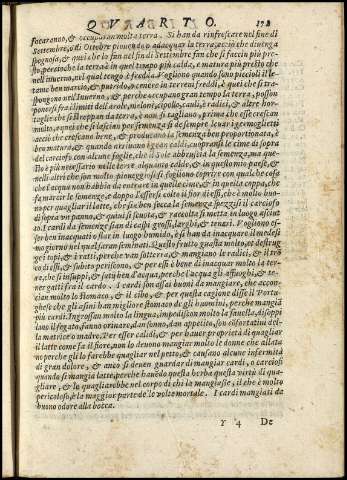 QVARGRITO. 172
fotaranno, & occuparan molta terra. Si han da rinfrescare nel fine di
Settembre, ò di Ottobre piouendo ò adacquar la terra, acciò che diuenga
spognosa, & qui che lo fan nel fin di Settembre fan che si facciu più pre-
sto, percioche la terra è in quel tempo più calda, e matura più presto che
nell'inuerno, nel qual tempo è fredda. Vogliono quando sono piccioli il le-
tame ben marcio, & putrido, e tenere in terreni freddi, & quei che si tra-
spongono nell'Inuerno, & perche occupano gran tempo la terra, posson
ponersi fra i limiti dell'arole, meloni, cipolle, cauli, e radici, & altre hor-
taglie che si strappan da terra, è non si tagliano, prima che essi crescan
molto, auanti che si lascian per semenza si de sempre leuar i germoglietti
acciò che crescano bene, & producano la semenza ben proportionata, è
ben matura, & quando arriuano i gran caldi, cuopransi le cime di sopra
del carciofo con alcune foglie, che il Sole abbrusciala semenza, ma que-
sto è più necessario nelle terre alquanto calde, & in questo mio paese, &
nelli altri che son molto pioueggiosi si fogliono coprire con qualche cosa
che l'acqua non habbia da entrare in quelle cime, & in quella coppa, che
fa marcar le semenze, e doppo l'essersi colto il fior di essi, che è molto buo-
no per quagliar il latte, chi si è ben secca la semenza spezzisi il carciofo
di sopra vn panno, & quiui si scuota, & raccolta si metta in luogo asciut
to. I cardi da semenze sian di caspi grossi, larghi, & teneri. Vogliono es-
ser ben inacquati o star in luogo humido, è si han da inacquare di meglio
vn giorno nel qual saran seminati. Questo frutto guasta molto, et destrug
ge i topi, ò i ratti, perche van sotterra, & mangiano le radici, & il tro
co di essi, & subito periscono, & per essi è bene di inacquar molto la ter-
ra, che si insuppi, & satij ben d'acqua, perche l'acqua gli affoghi, & te-
ner gatti fra il cardo. I cardi assai buoni da mangiare, che accon-
cian molto lo stomaco, & il cibo, & per questa cagione disse il Porta-
ghese che gli asini han migliore stomaco de gli huomini, perche mangia
più cardi. Ingrossan molto la lingua, impediscon molto la fauella, disoppi
lano il fegato, fanno orinare, dan sonno, dan appetito, son confortatiui del-
la matrice ò madre. Per esser caldi, & per hauer proprietà di quagliar
il latte come fa il fiore, non lo deueno mangiar molto le donne che allatta
no perche gli lo farebbe quagliar nel petto, & causano alcune infermità
di gran dolore, & anco si deuen guardar di mangiar cardi, o carciofi
quando si mangia latte, perche hauendo questa herba questa virtù di qua-
gliare, & lo quagliarebbe nel corpo di chi lo mangiasse, il che è molto
pericoloso, è la maggior parte de le volte mortale. I cardi mangiati da
buono odore alla bocca.
Y 4 De